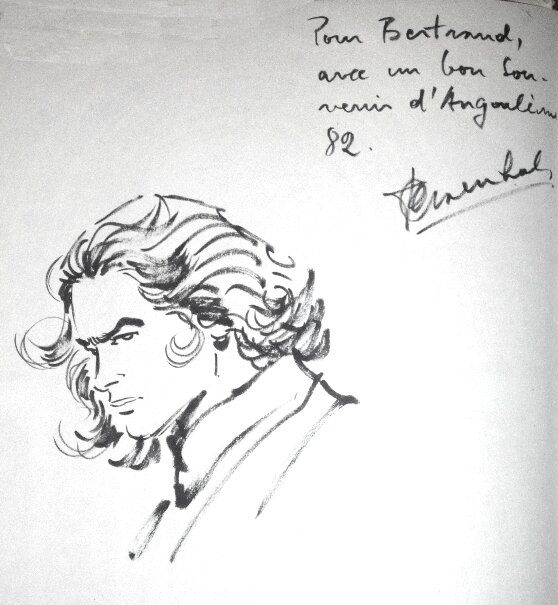 Pour Bertrand,
avec un bon Sou-
venir d'Angoulême
82.